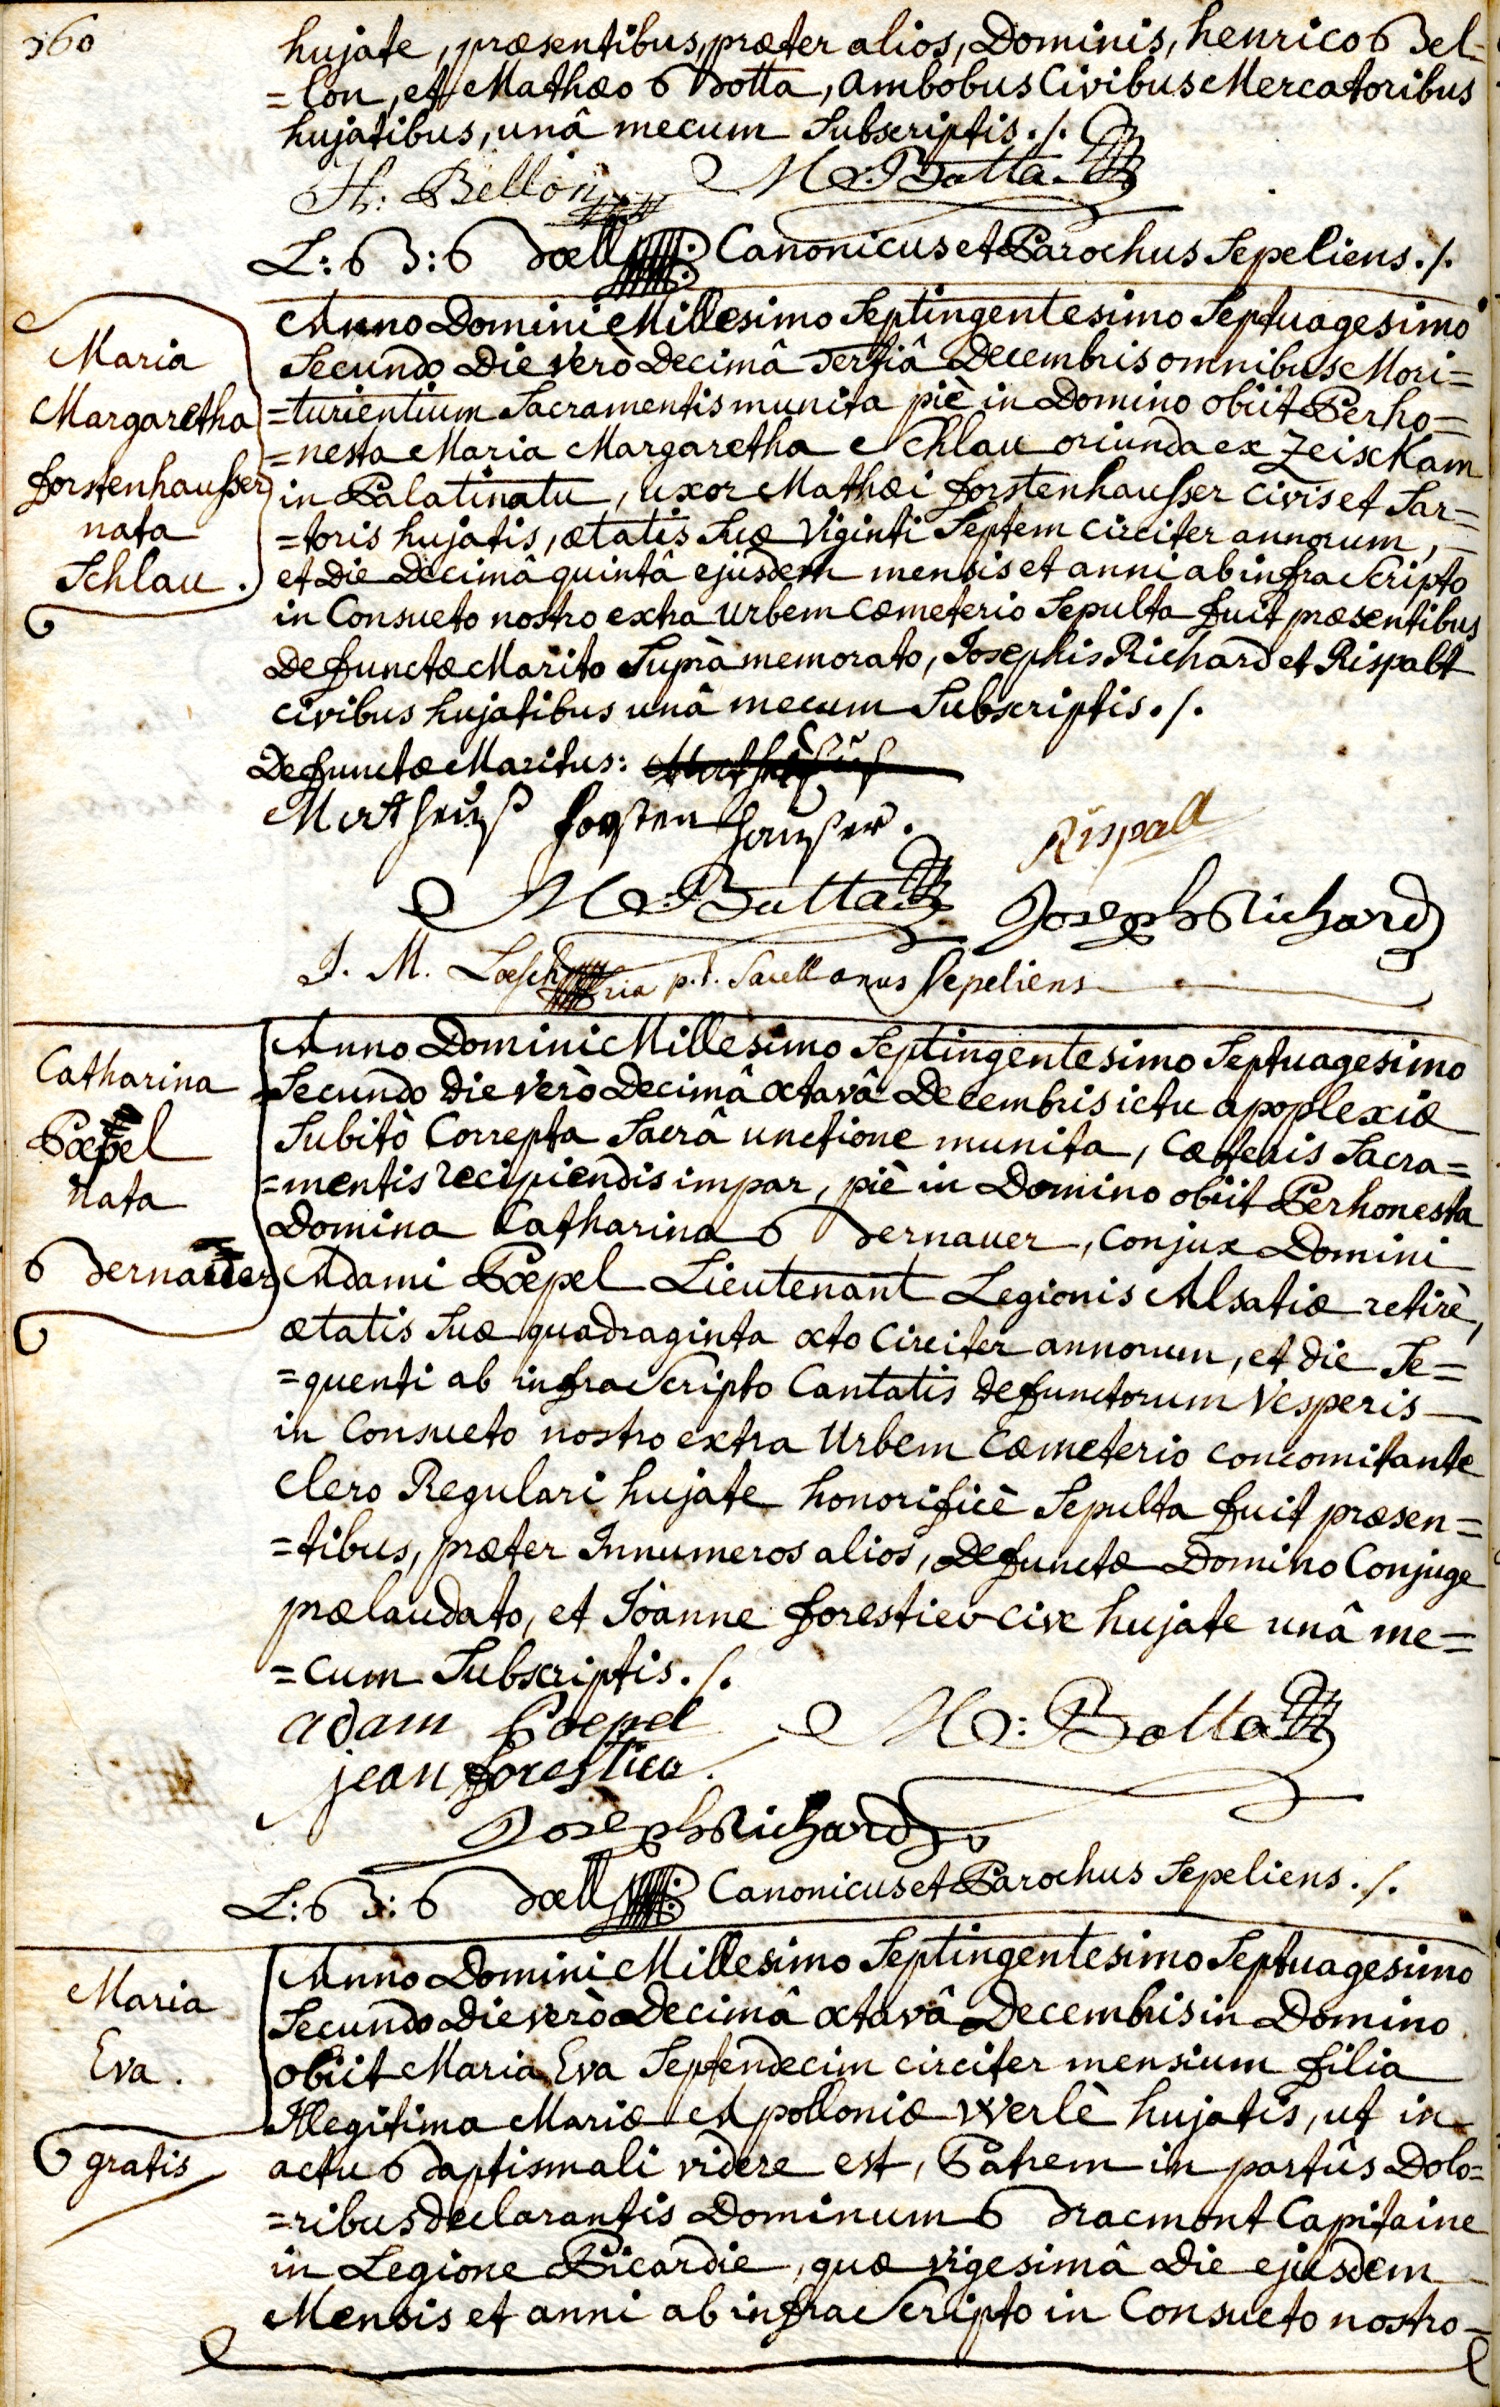 360
hujate, præsentibus, præter alios, Dominis, henrico Bel-
=lon, et Mathæo Botta, ambobus Civibus Mercatoribus
hujatibus, unâ mecum Subscriptis ./.
H: Bellon M: Botta
L: B: Boell Canonicus et Parochus Sepeliens ./.
Maria
Margaretha
forstenhausser
nata
Schlau.
Anno Domini Millesimo Septingentesimo Septuagesimo
Secundo Die verò Decimâ Tertiâ Decembris omnibus Mori=
=turientium Sacramentis munita piè in Domino obiit Perho=
=nesta Maria Margaretha Schlau oriunda ex Zeisckam
in Palatinatu, uxor Mathæi forstenhausser civis et Sar=
=toris hujatis, ætatis Suæ Viginti Septem circiter annorum,
et Die Decimâ quintâ ejusdem mensis et anni ab infra Scripto
in Consueto nostro extra urbem Cœmeterio Sepulta fuit præsentibus
Defunctæ Marito Suprà memorato, Josephis Richard et Rispalt
civibus hujatibus unâ mecum Subscriptis ./.
Defunctæ Maritus:
Mattheus forstenhausser.
Rispall
M: Botta Joseph Richard
J. M. Loesch p.t. Sacellanus Sepeliens
Catharina
Pœpel
nata
Bernauer
Anno Domini Millesimo Septingentesimo Septuagesimo
Secundo Die verò Decimâ octavâ Decembris ictu apoplexiæ
Subitò Correpta Sacrâ unctione munita, Cæteris Sacra=
=mentis recipiendis impar, piè in Domino obiit Perhonesta
Domina Catharina Bernauer, Conjux Domini
Adami Pœpel Lieutenant Legionis Alsatiæ retiré,
ætatis Suæ quadraginta octo Circiter annorum, et die Se=
=quenti ab infra Scripto Cantatis defunctorum Vesperis
in Consueto nostro extra Urbem Cœmeterio concomitante
Clero Regulari hujate honorificè Sepulta fuit præsen=
=tibus, præter Innumeros alios, Defunctæ Domino Conjuge
prælaudato, et Joanne forestier cive hujate unâ me=
=cum Subscriptis ./.
adam Poepel M: Botta
jean forestier
Joseph Richard
L: B: Boell Canonicus et Parochus Sepeliens ./.
Maria
Eva.
gratis
Anno Domini Millesimo Septingentesimo Septuagesimo
Secundo Die verò Decimâ octavâ Decembris in Domino
obiit Maria Eva Septendecim circiter mensium filia
Illegitima Mariæ Apolloniæ Werlè hujatis, ut in
actu Baptismali videre est, Patrem in partûs Dolo=
=ribus declarantis Dominum Bracmont Capitaine
in Legione Picardie, quæ vigesimâ Die ejusdem
Mensis et anni ab infra Scripto in Consueto nostro=